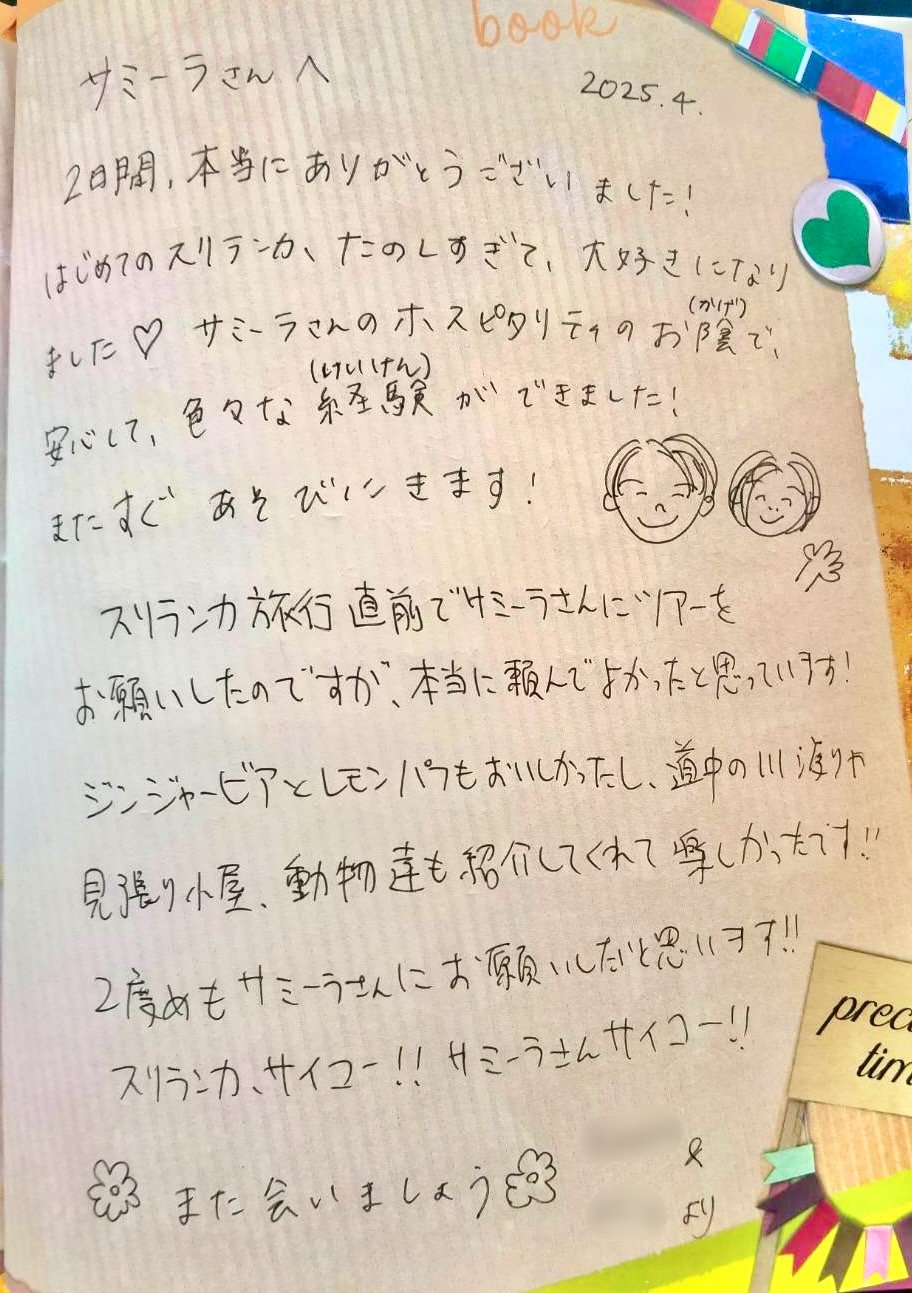 book
サミーラさんへ
2025.4.
2日間、本当にありがとうございました!
はじめてのスリランカ、たのしすぎて、大好きになり
ました♡ サミーラさんのホスピタリティのお陰(かげ)で、
安心して、色々な経験(けいけん)ができました!
またすぐ あそびにいきます!
スリランカ旅行直前でサミーラさんにツアーを
お願いしたのですが、本当に頼んでよかったと思っています!
ジンジャービアとレモンパフもおいしかったし、道中の川渡りや
見張り小屋、動物達も紹介してくれて楽しかったです!!
2度めもサミーラさんにお願いしたいと思います!!
スリランカ、サイコー!! サミーラさんサイコー!!
また会いましょう
&
より
prec
tim